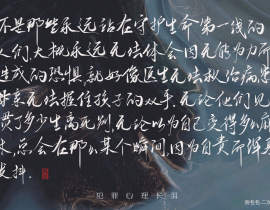 不是那些永远站在守护生命第一线的
人们,大概永远无法体会因无能为力而
造成的恐惧,就好像医生无法救治病患
警察无法握住孩子的双手,无论他们见
惯了多少生离死别,无论以为自己变得多么麻
木,总会在那么某个瞬间,因为自责而浑身
发抖.
犯罪心理长洱